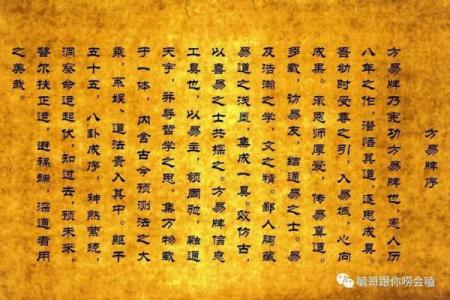 方易牌序
方易牌乃宪功方易牌也宪人历
八年之作，潜悟其道，逐思成具。
吾幼时受尊之引，入易域，心向
成果。承恩师厚爱，传易真道。
多载，访易友，结通易之士。易
及浩瀚之学，文之精。鄙人胸藏
易道之浅墨，集成一具。效仿古
以喜易之士共探之。方易牌信息
工具也，以易主，领周驰，融通
天宇，并导哲学之思，集万物载
于一体，内含古今预测法之大
乘，系娱，道法贵入其中。躯干
五十五，八卦成序，神煞萦绕，
洞察命运起伏，知过去，预未来，
替尔扶正道，避祸端，深通者用
之美哉。
毓哥跟你唠会嗑